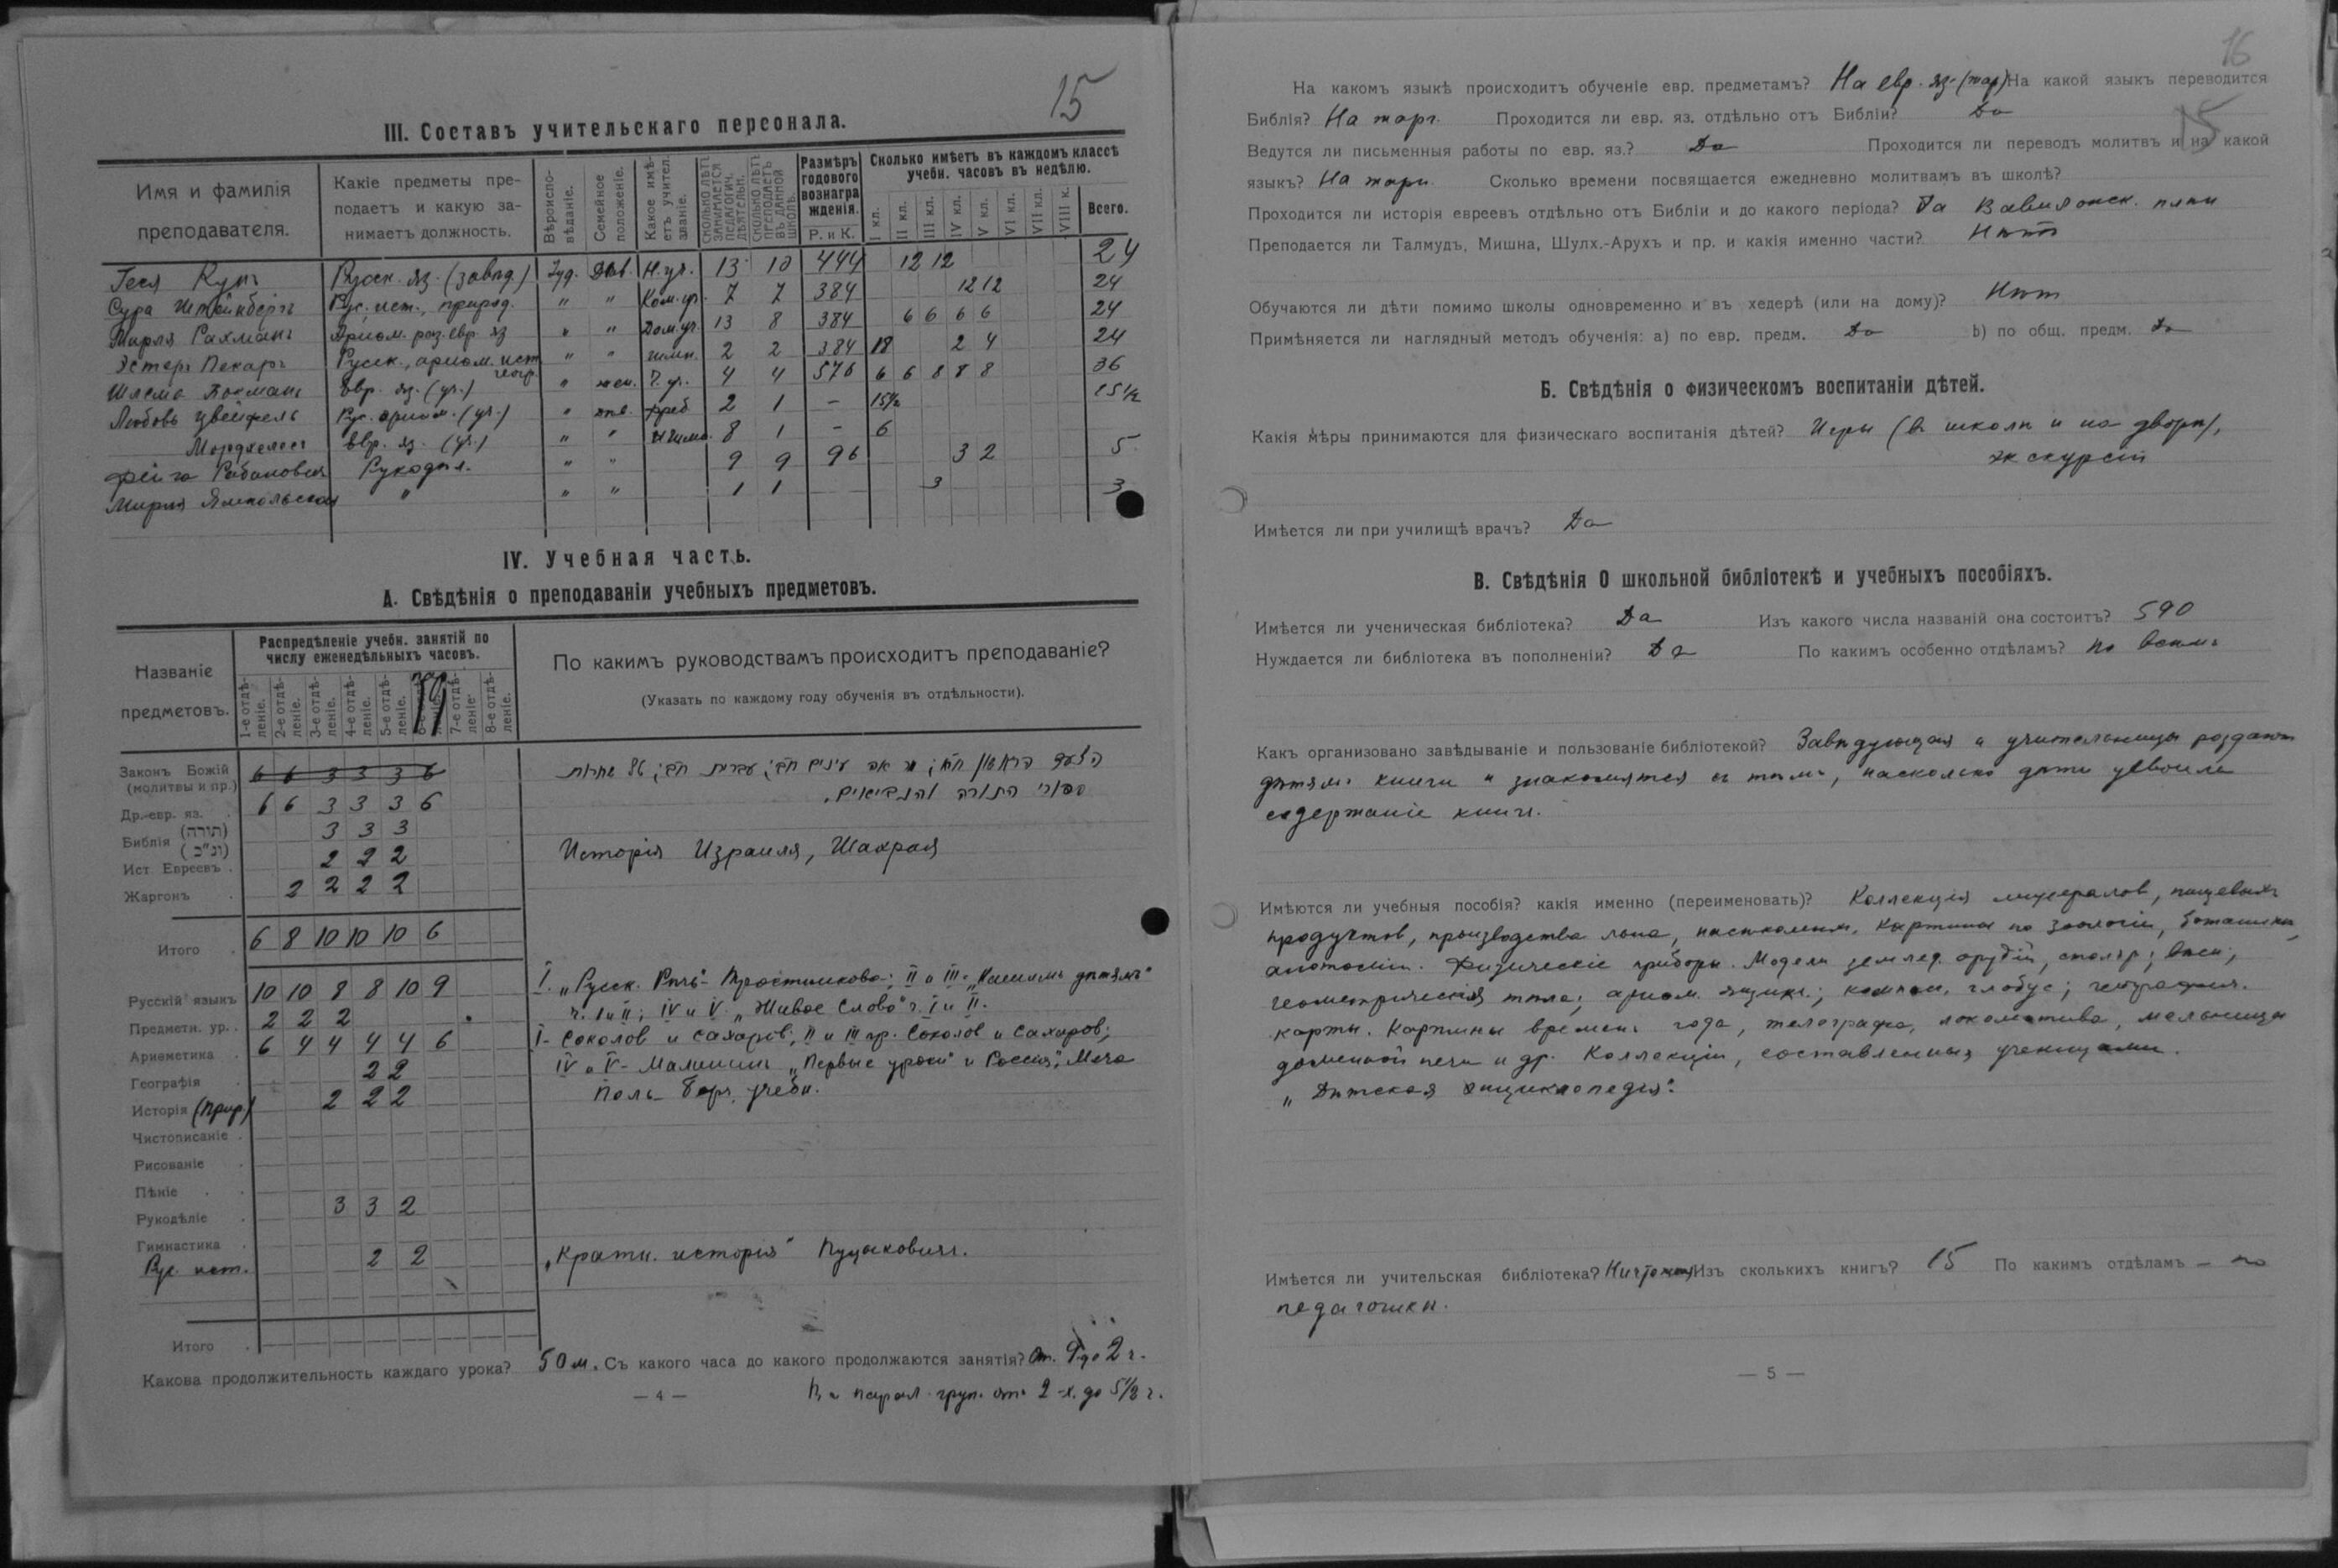 15
III. Составъ учительскаго персонала.
Имя и фамилія преподавателя.
Какіе предметы преподаетъ и какую занимаетъ должность.
Вѣроисповѣданіе.
Семейное положеніе.
Какое имѣетъ учител. званіе.
Сколько лѣтъ занимается педагогич. дѣятельн.
Сколько лѣтъ преподаетъ въ данной школѣ.
Размѣръ годового вознагражденія. Р. и К.
Сколько имѣетъ въ каждомъ классѣ учебн. часовъ въ недѣлю.
I кл. II кл. III кл. IV кл. V кл. VI кл. VII кл. VIII к. Всего.
Геся Русск. яз. (завѣд.) Іуд. Дѣв. 13 10 444 12 12 24
Сура Штейнбергъ Рус. ист., природ. " " 7 7 384 12 12 24
Мирля Рахманъ Ариѳм. евр. яз " " Дом. уч. 13 8 384 6 6 6 6 24
Эстеръ Пекаръ Русск., ариѳм. ист геогр. " " 2 2 384 18 2 4 24
Шлема евр. яз. (уч.) " жен. 4 4 576 6 6 8 8 8 36
Любовь Цвейфель Рус. ариѳм. (уч.) " 2 1 - 15½ 15½
евр. яз. (уч.) " " 8 1 - 6
Фейга Рабиновичъ Рукодѣл. " " 9 9 96 3 2 5
Мирля Ямпольская " " " 1 1 3 3
IV. Учебная часть.
А. Свѣдѣнія о преподаваніи учебныхъ предметовъ.
Названіе предметовъ.
Распредѣленіе учебн. занятій по числу еженедѣльныхъ часовъ.
1-е отдѣленіе. 2-е отдѣленіе. 3-е отдѣленіе. 4-е отдѣленіе. 5-е отдѣленіе. 7-е отдѣленіе. 8-е отдѣленіе.
По какимъ руководствамъ происходитъ преподаваніе?
(Указать по каждому году обученія въ отдѣльности).
Законъ Божій (молитвы и пр.) 6 6 3 3 3 6
Др.-евр. яз. 6 6 3 3 3 6
ספורי התורה והנביאים.
Библія (תורה) (נ"כ) 3 3 3
Ист Евреевъ. 2 2 2 Исторія Израиля, Шахрая
Жаргонъ. 2 2 2 2
Итого. 6 8 10 10 10 6
Русскій языкъ 10 10 8 8 10 9 I. „Русск. Рѣчь"- ; II и III- „Нашимъ дѣтямъ"
Предметн. ур. 2 2 2 ч. I и II; IV и V „Живое Слово" ч. I и II.
Ариѳметика. 6 4 4 4 4 6 I- Соколов и Сахаров; II и III пр. Соколов и Сахаров;
Географія 2 2 IV и V- Малининъ „Первые уроки" и Россія", Меча
Исторія (прир) 2 2 2 Поль Беръ, учебн.
Чистописаніе.
Рисованіе
Пѣніе
Рукодѣліе 3 3 2
Гимнастика
Рус. ист. 2 2 „Кратк. исторія" Пуцыковичъ.
Итого
Какова продолжительность каждаго урока? 50 м. Съ какого часа до какого продолжаются занятія? От. 9 до 2 ч.
— 4 — парал. груп. отъ 2-х. до 5½ ч.
16
15
На какомъ языкѣ происходитъ обученіе евр. предметамъ? На евр. яз. (жар) На какой языкъ переводится
Библія? На жарг. Проходится ли евр. яз. отдѣльно отъ Библіи? Да
Ведутся ли письменныя работы по евр. яз.? Да Проходится ли переводъ молитвъ и на какой
языкъ? На жарг. Сколько времени посвящается ежедневно молитвамъ въ школѣ?
Проходится ли исторія евреевъ отдѣльно отъ Библіи и до какого періода? Да Вавилонск. плѣн
Преподается ли Талмудъ, Мишна, Шулх.-Арухъ и пр. и какія именно части? Нѣтъ
Обучаются ли дѣти помимо школы одновременно и въ хедерѣ (или на дому)? Нѣт
Примѣняется ли наглядный методъ обученія: а) по евр. предм. Да b) по общ. предм. Да
Б. Свѣдѣнія о физическомъ воспитаніи дѣтей.
Какія мѣры принимаются для физическаго воспитанія дѣтей? Игры (в школѣ и на дворѣ),
экскурсіи
Имѣется ли при училищѣ врачъ? Да
В. Свѣдѣнія О школьной библіотекѣ и учебныхъ пособіяхъ.
Имѣется ли ученическая библіотека? Да Изъ какого числа названій она состоитъ? 590
Нуждается ли библіотека въ пополненіи? Да По какимъ особенно отдѣламъ? по всѣмъ
Какъ организовано завѣдываніе и пользованіе библіотекой? Завѣдующая и учительницы раздаютъ
дѣтямъ книги и знакомятся съ тѣмъ, насколько дѣти усвоили
содержаніе книги.
Имѣются ли учебныя пособія? какія именно (переименовать)? Коллекція минералов, пищевыхъ
продуктов, производства льна, насѣкомых. Картины по зоологіи, ботаникѣ,
анатоміи. Физическіе приборы. Модели землед. орудій, столяр; вѣсы;
геометрическія тѣла; ариѳм. ящикъ; компас, глобус; географич.
карты. Картины времени года, телеграфа, локомотива, мельницы
доменной печи и др. Коллекціи, составленныя ученицами.
„Дѣтская энциклопедія".
Имѣется ли учительская библіотека? Изъ сколькихъ книгъ? 15 По какимъ отдѣламъ — по
педагогикѣ.
— 5 —